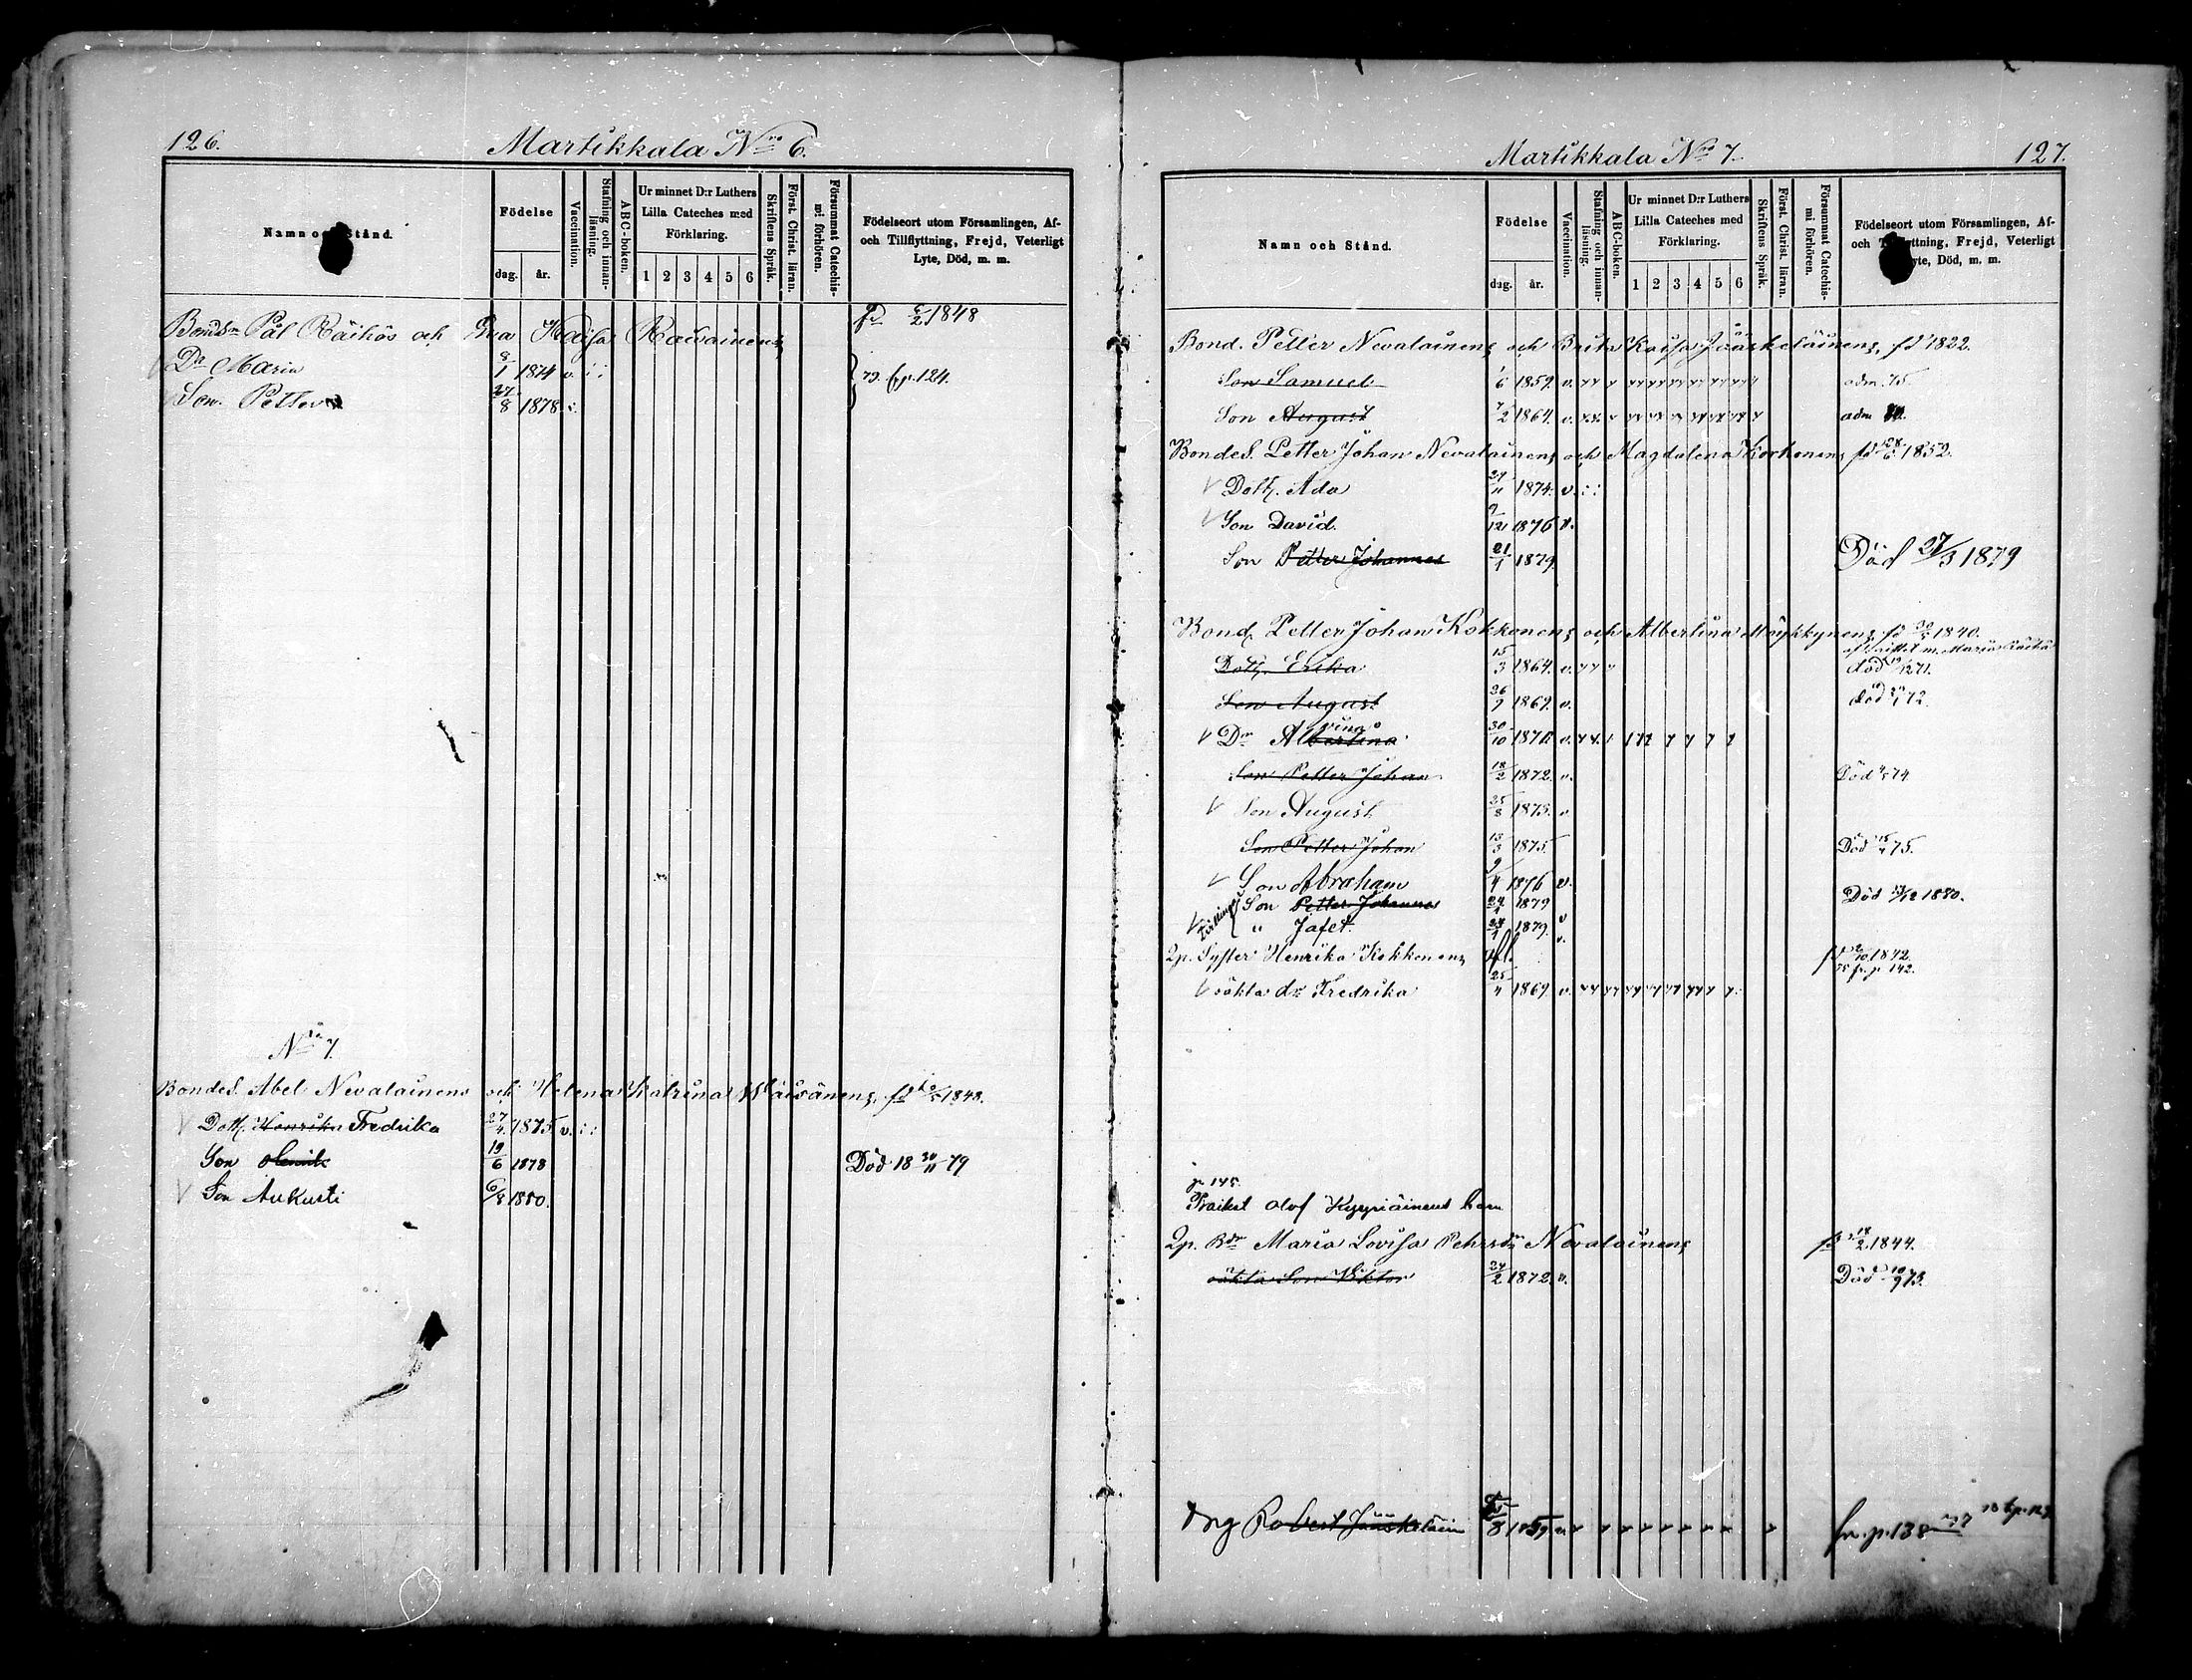 126.
Martikkala No 6.
Namn och Stånd.
Födelse
dag. år.
Vaccination.
Stafning och innanläsning.
ABC-boken.
Ur minnet D:r Luthers Lilla Cateches med Förklaring.
1 2 3 4 5 6
Skriftens Språk.
Först. Christ. läran.
Försummat Catechismi förhören.
Födelseort utom Församlingen, Af- och Tillflyttning, Frejd, Veterligt Lyte, Död, m. m.
Pål Räihös och Kaisa fd 1848
Dr Maria 8/1 1874 v. 79. fr p. 124.
Son Petter 27/8 1878
No 7
Bondes. Abel Nevalainens och Helena Katrina Väisänens, fd 1848.
Dott. Henrika Fredrika 27/4 1875 v.
Son Henrik 19/6 1878 Död 18 30/11 79
Son Aukusti 6/8 1880.
Martikkala No 7.
127.
Namn och Stånd.
Födelse
dag. år.
Vaccination.
Stafning och innanläsning.
ABC-boken.
Ur minnet D:r Luthers Lilla Cateches med Förklaring.
1 2 3 4 5 6
Skriftens Språk.
Först. Christ. läran.
Försummat Catechismi förhören.
Födelseort utom Församlingen, Af- och Tillflyttning, Frejd, Veterligt Lyte, Död, m. m.
Bond. Petter Nevalainens och Brita Kaisa Jääskeläinens, fd 1822.
Son Samuel 1/6 1859. v. adm. 75.
Son August 7/2 1864. v. adm
Bondes. Petter Johan Nevalainens och Magdalena Korhonens fd 28/6 1852.
Dott. Ada 27/11 1874. v.
Son David 9/12 1876 v.
Son Petter Johannes 21/1 1879. Död 27/3 1879
Bond. Petter Johan Kokkonens och Albertina Möykkynens, fd 1840.
Dott. Erika 15/3 1864. v. död 71.
Son August 26/7 1869. v. död 72.
Dr Albertina vina 30/10 1870 v.
Son Petter Johan 18/2 1872. v. Död 4/5 74
Son August 25/8 1873. v.
Son Petter Johan 13/3 1875. Död 15/4 75.
Son Abraham 9/4 1876 v.
Tvillingar Son Petter Johannes 24/1 1879 Död /12 1880.
" Jafet. 24/1 1879. v.
Qp. Syster Henrika Kokkonens fd 1842. 75 fr. p. 142.
oäkta dr Fredrika 25/4 1869 v.
p 145.
Olof barn
Qp. Bdr Maria Lovisa Pehrsdr Nevalainens fd 18/2 1844.
oäkta Son Viktor 24/2 1872. v. Död 10/9 73.
Drg Robert Jääskeläin 1859 fr. p. 138